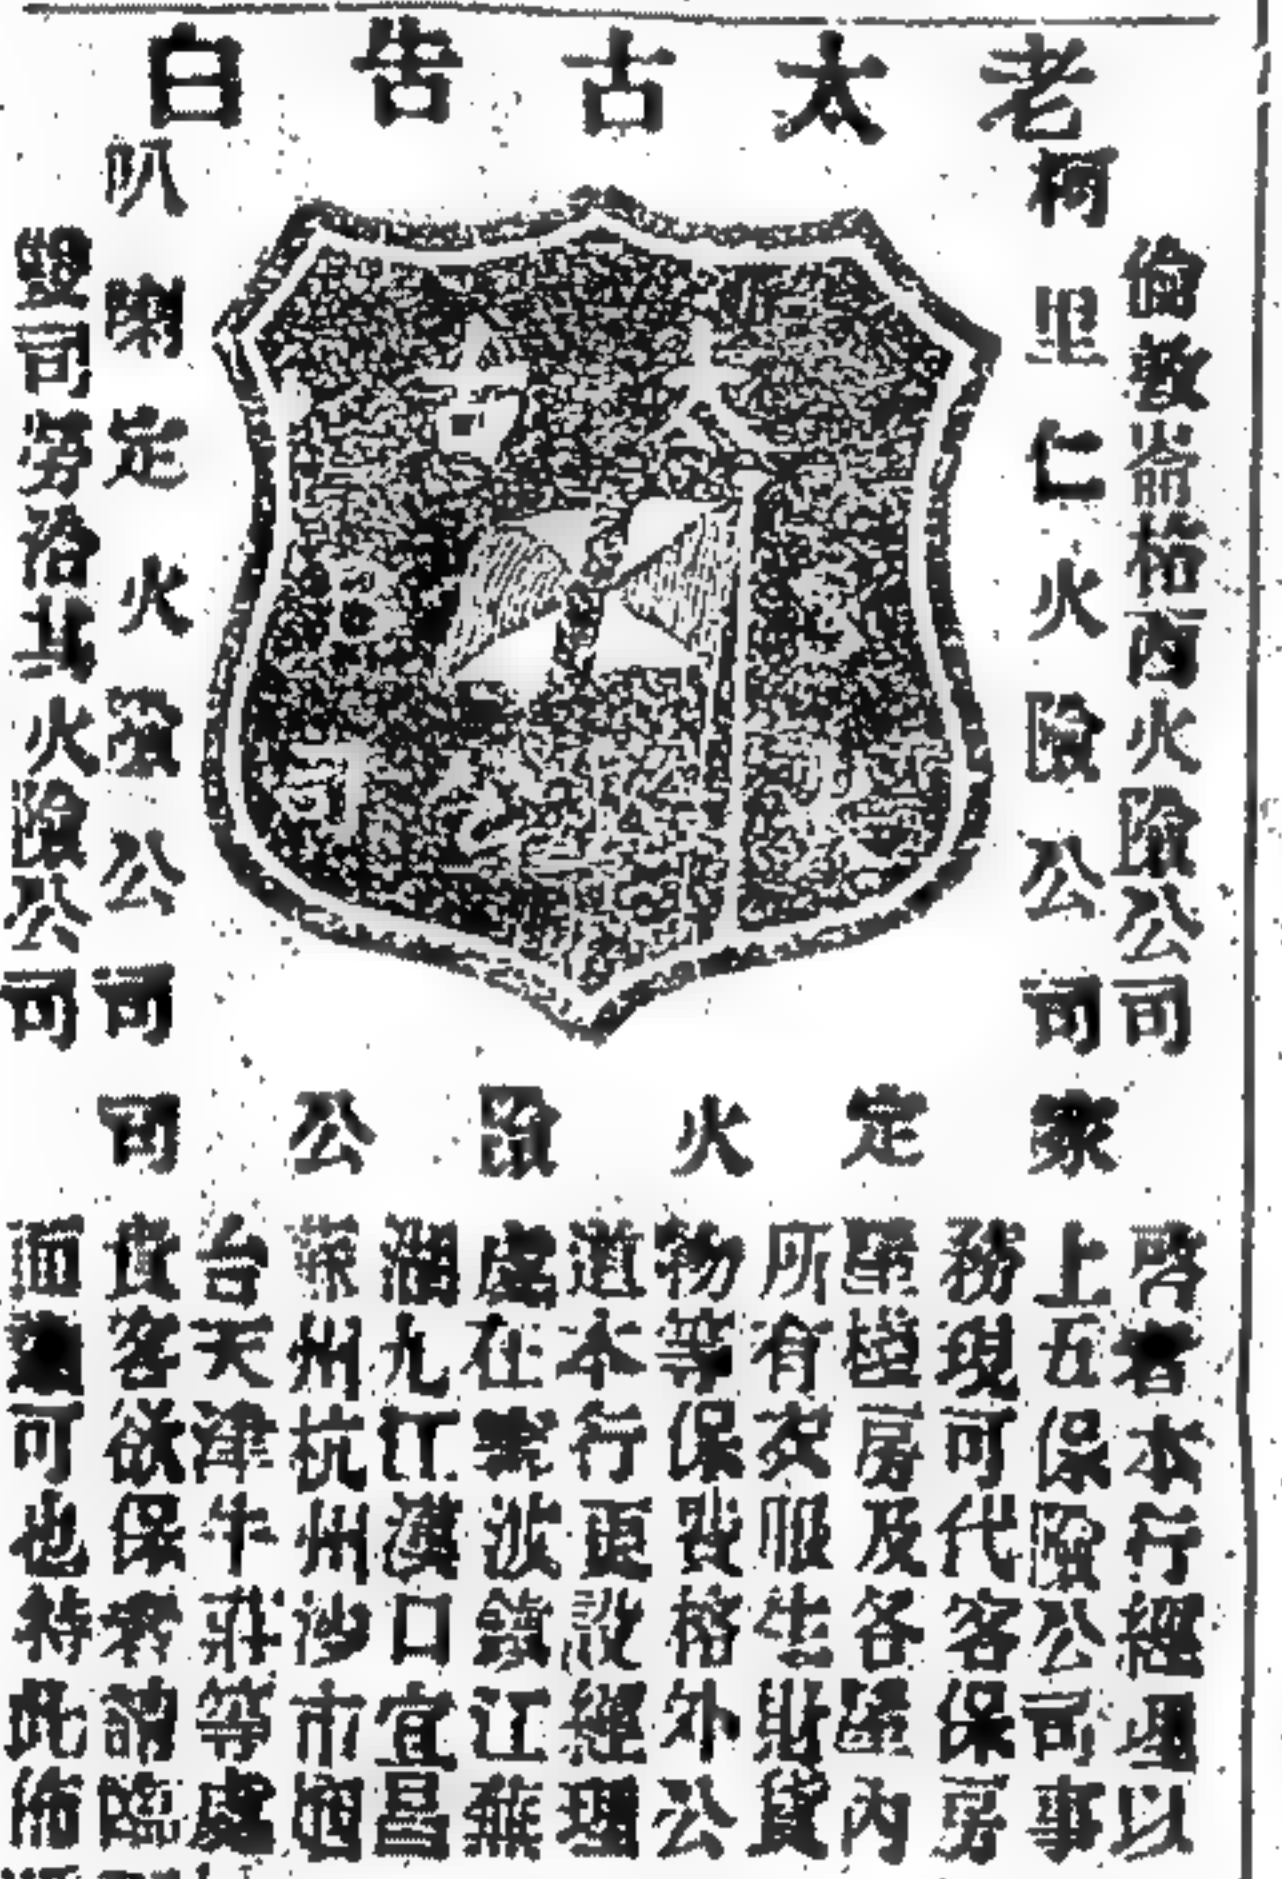 老太古告白
倫敦崙梏西火險公司
柯里仁火險公司
叭喇定火險公司
司旁洽其火險公司
家定火險公司
啓者本行經理以
上五保險公司事
務現可代客保房
屋棧房及各屋內
所有衣服生財貨
物等保費格外公
道本行更設經理
處在寧波鎮江蕪
湖九江漢口宜昌
蘇州杭州沙市烟
台天津牛莊等處
貴客欲保者請臨
面議可也特此佈